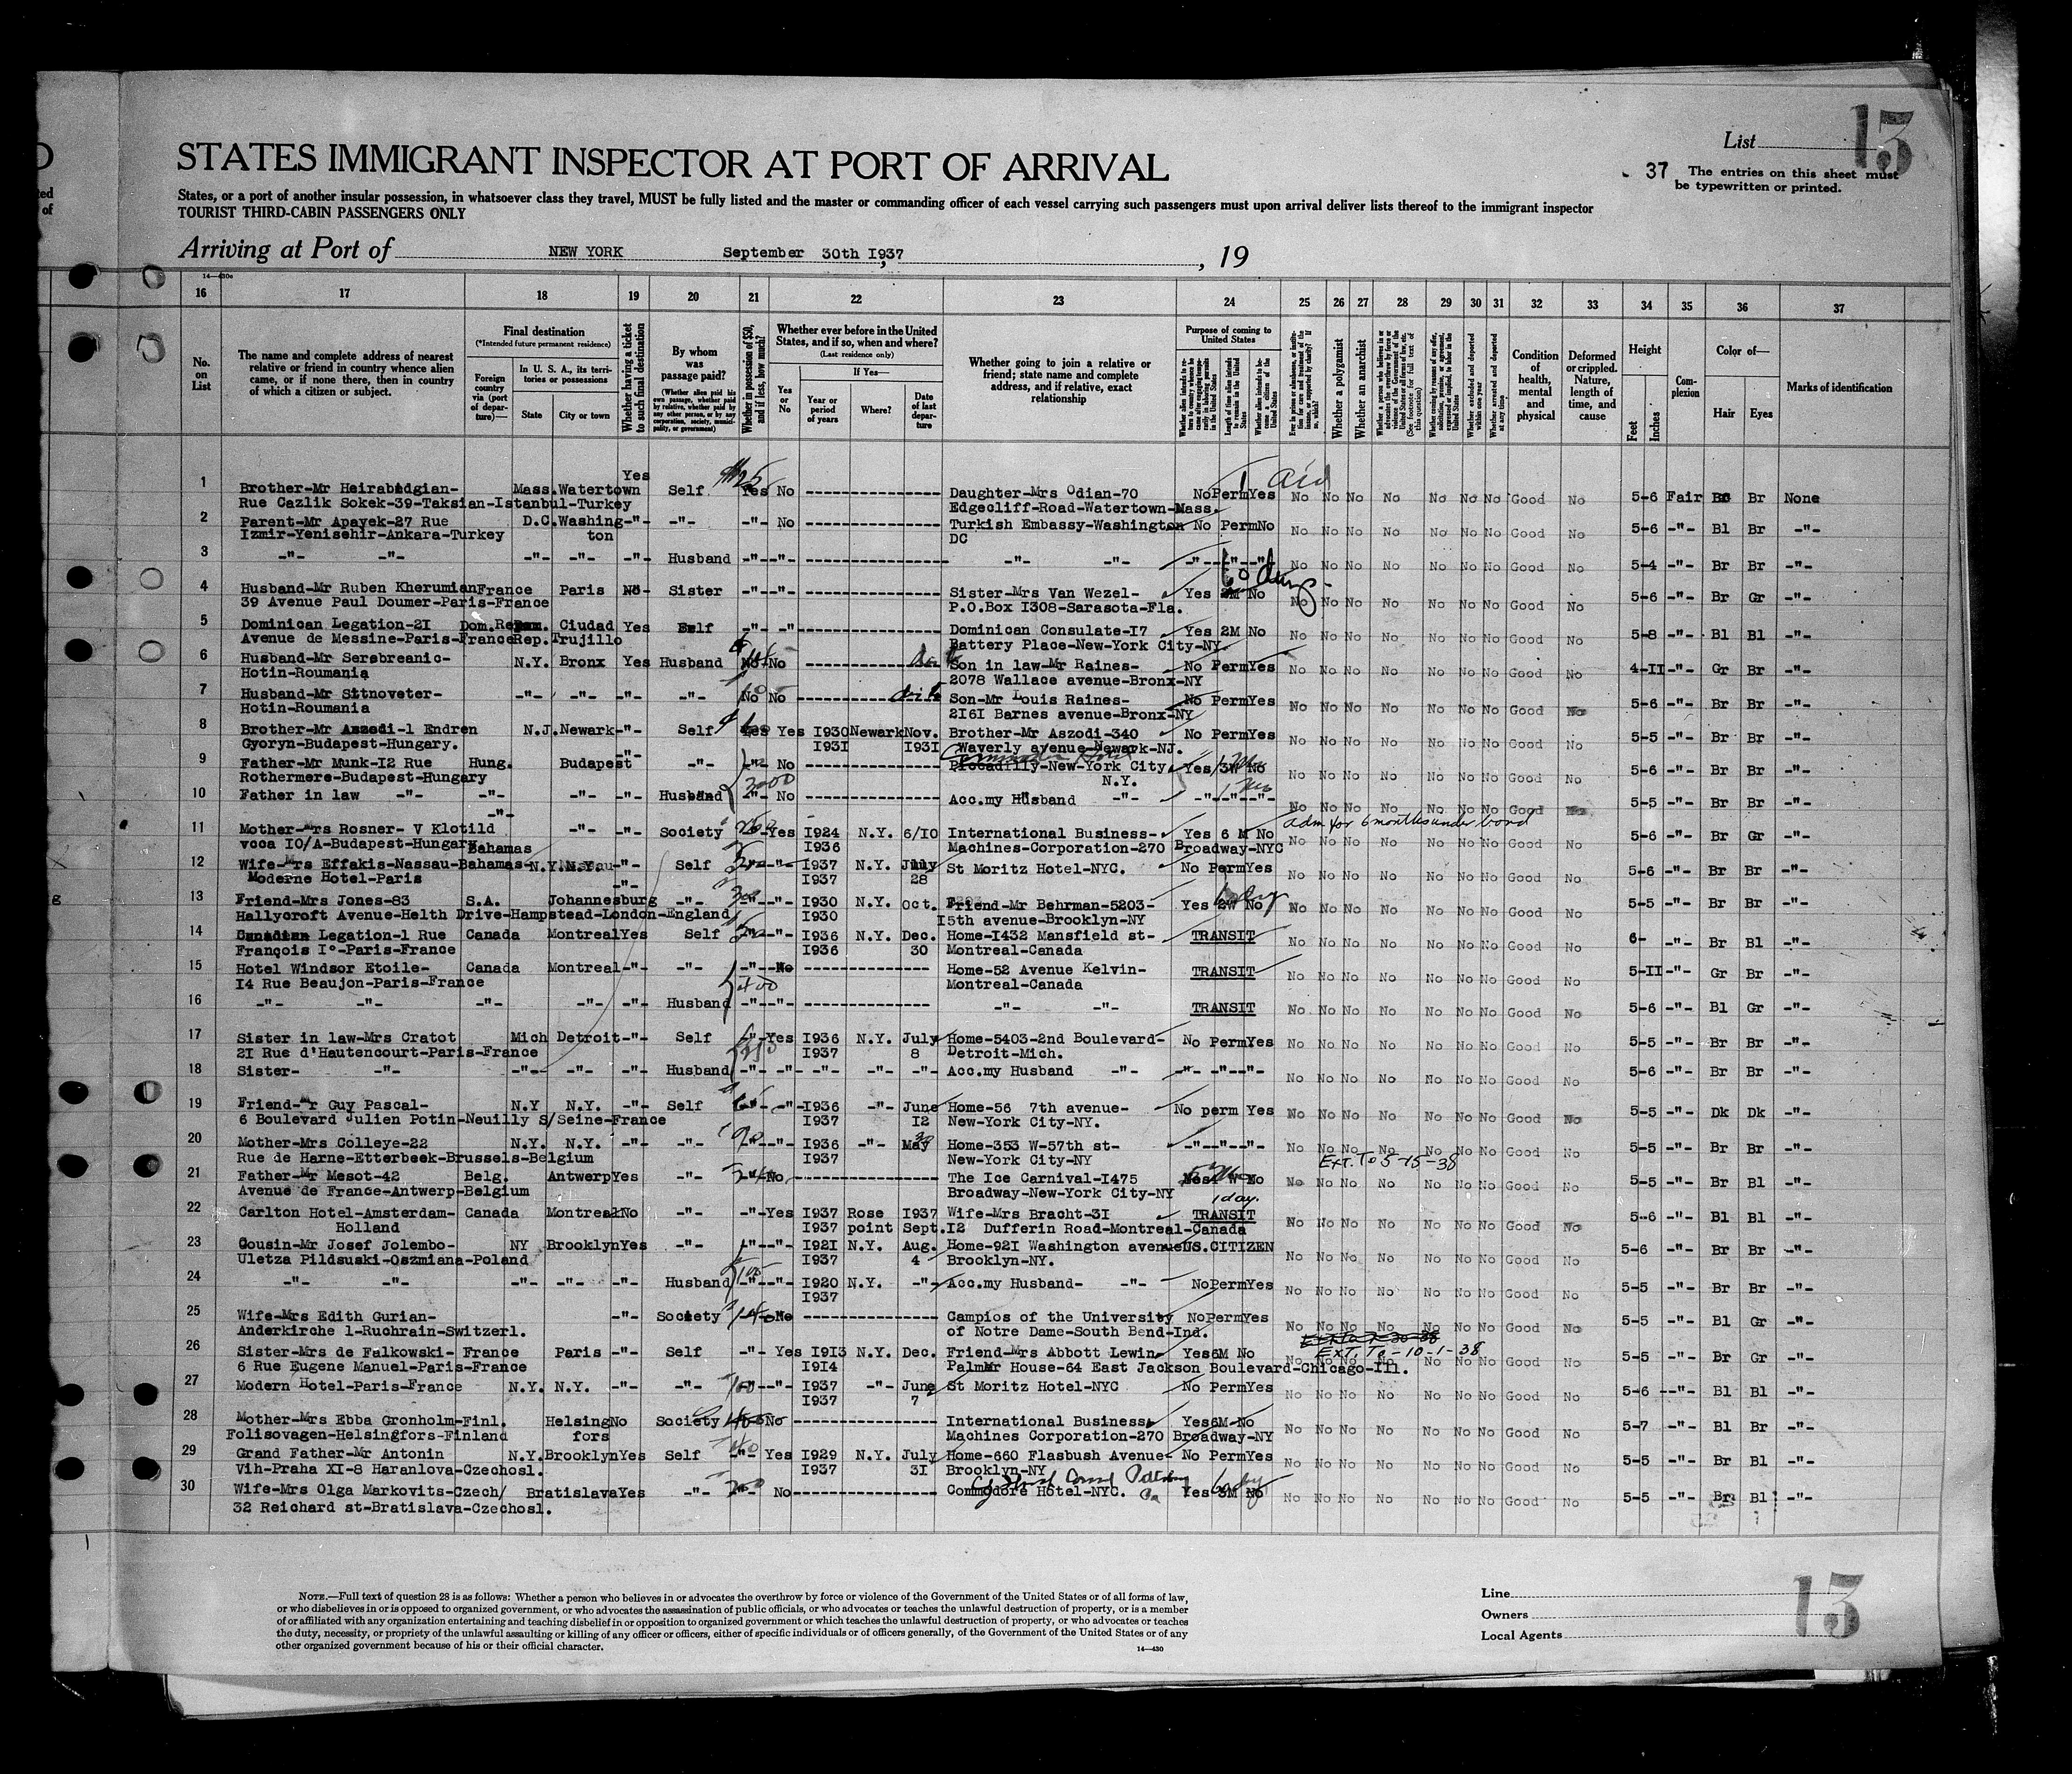 List
13
STATES IMMIGRANT INSPECTOR AT PORT OF ARRIVAL
37 The entries on this sheet must
be typewritten or printed.
States, or a port of another insular possession, in whatsoever class they travel, MUST be fully listed and the master or commanding officer of each vessel carrying such passengers must upon arrival deliver lists thereof to the immigrant inspector
TOURIST THIRD-CABIN PASSENGERS ONLY
Arriving at Port of NEW YORK September 30th I937, 19
16 17 18 19 20 21 22 23 24 25 26 27 28 29 30 31 32 33 34 35 36 37
No. on List
The name and complete address of nearest relative or friend in country whence alien came, or if none there, then in country of which a citizen or subject.
Final destination
(*Intended future permanent residence)
Foreign country via (port of departure)—
In U. S. A., its territories or possessions
State City or town
Whether having a ticket to such final destination
By whom was passage paid?
(Whether alien paid his own passage, whether paid by relative, whether paid by any other person, or by any corporation, society, municipality, or government)
Whether in possession of $50, and if less, how much?
Whether ever before in the United States, and if so, when and where?
(Last residence only)
Yes or No
If Yes—
Year or period of years
Where?
Date of last departure
Whether going to join a relative or friend; state name and complete address, and if relative, exact relationship
Purpose of coming to United States
Whether a polygamist
Whether an anarchist
Condition of health, mental and physical
Deformed or crippled. Nature, length of time, and cause
Height
Feet Inches
Complexion
Color of—
Hair Eyes
Marks of identification
1 Brother-Mr Heirabedgian- Mass. Watertown Yes Self Yes No Daughter-Mrs Odian-70 No Perm Yes No No No No No No No Good No 5-6 Fair Br Br None
Rue Cazlik Sokek-39-Taksian-Istanbul-Turkey Edgecliff-Road-Watertown-Mass.
2 Parent-Mr Apayek-27 Rue D.C. Washing- -"- -"- -"- No Turkish Embassy-Washington No Perm No No No No No No No No Good No 5-6 -"- Bl Br -"-
Izmir-Yenisehir-Ankara-Turkey ton DC
3 -"- -"- -"- -"- -"- Husband -"- -"- -"- -"- -"- -"- -"- No No No No No No No Good No 5-4 -"- Br Br -"-
4 Husband-Mr Ruben Kherumian France Paris No Sister -"- -"- Sister-Mrs Van Wezel- Yes 2M No No No No No No No No Good No 5-6 -"- Br Gr -"-
39 Avenue Paul Doumer-Paris-France P.O.Box I308-Sarasota-Fla.
5 Dominican Legation-2I Dom.Rep. Ciudad Yes Self -"- -"- Dominican Consulate-I7 Yes 2M No No No No No No No No Good No 5-8 -"- Bl Bl -"-
Avenue de Messine-Paris-France Rep. Trujillo Battery Place-New-York City-NY.
6 Husband-Mr Serebreanic- N.Y. Bronx Yes Husband No No Son in law-Mr Raines- No Perm Yes No No No No No No No Good No 4-II -"- Gr Br -"-
Hotin-Roumania 2078 Wallace avenue-Bronx-NY
7 Husband-Mr Sitnoveter- -"- -"- -"- -"- No No Son-Mr Louis Raines- No Perm Yes No No No No No No No Good No 5-6 -"- Br Br -"-
Hotin-Roumania 2I6I Barnes avenue-Bronx-NY
8 Brother-Mr Aszodi-1 Endren N.J. Newark -"- Self Yes Yes I930 Newark Nov. Brother-Mr Aszodi-340 No Perm Yes No No No No No No No Good No 5-5 -"- Br Br -"-
Gyoryn-Budapest-Hungary. I93I I93I Waverly avenue-Newark-NJ.
9 Father-Mr Munk-I2 Rue Hung. Budapest -"- -"- -"- No Piccadilly-New-York City Yes 3W No No No No No No No No Good No 5-6 -"- Br Br -"-
Rothermere-Budapest-Hungary 3000 N.Y.
10 Father in law -"- -"- -"- -"- Husband -"- No Acc.my Husband -"- -"- -"- -"- No No No No No No No Good No 5-5 -"- Br Br -"-
adm for 6 months under bond
11 Mother-Mrs Rosner- V Klotild -"- -"- -"- Society Yes I924 N.Y. 6/IO International Business- Yes 6 M No No No No No No No No Good No 5-6 -"- Br Gr -"-
vcca IO/A-Budapest-Hungary I936 Machines-Corporation-270 Broadway-NYC
12 Wife-Mrs Effakis-Nassau-Bahamas Bahamas N.Y. N.Y. -"- Self -"- I937 N.Y. July St Moritz Hotel-NYC. No Perm Yes No No No No No No No Good No 5-6 -"- Br Br -"-
Moderne Hotel-Paris I937 28
13 Friend-Mrs Jones-83 S.A. Johannesburg -"- -"- -"- I930 N.Y. Oct. Friend-Mr Behrman-5203- Yes 2W No No No No No No No No Good No 5-5 -"- Br Br -"-
Hallycroft Avenue-Helth Drive-Hampstead-London-England I930 I5th avenue-Brooklyn-NY
14 Canadian Legation-1 Rue Canada Montreal Yes Self -"- I936 N.Y. Dec. Home-I432 Mansfield st- TRANSIT No No No No No No No Good No 6- -"- Br Bl -"-
François I°-Paris-France I936 30 Montreal-Canada
15 Hotel Windsor Etoile- Canada Montreal -"- -"- -"- No Home-52 Avenue Kelvin- TRANSIT No No No No No No No Good No 5-II -"- Gr Br -"-
I4 Rue Beaujon-Paris-France 400 Montreal-Canada
16 -"- -"- -"- -"- -"- Husband -"- -"- -"- -"- TRANSIT No No No No No No No Good No 5-6 -"- Bl Gr -"-
17 Sister in law-Mrs Cratot Mich Detroit -"- Self -"- Yes I936 N.Y. July Home-5403-2nd Boulevard- No Perm Yes No No No No No No No Good No 5-5 -"- Br Br -"-
2I Rue d'Hautencourt-Paris-France I937 8 Detroit-Mich.
18 Sister- -"- -"- -"- -"- Husband -"- -"- -"- -"- -"- Acc.my Husband -"- -"- -"- -"- No No No No No No No Good No 5-6 -"- Br Br -"-
19 Friend-Mr Guy Pascal- N.Y N.Y. -"- Self -"- I936 -"- June Home-56 7th avenue- No perm Yes No No No No No No No Good No 5-5 -"- Dk Dk -"-
6 Boulevard Julien Potin-Neuilly S/Seine-France I937 I2 New-York City-NY.
20 Mother-Mrs Colleye-22 N.Y. N.Y. -"- -"- -"- -"- I936 -"- May Home-353 W-57th st- -"- -"- -"- No No No No No No No Good No 5-5 -"- Br Br -"-
Rue de Harne-Etterbeek-Brussels-Belgium I937 New-York City-NY
EXT. TO 5-15-38
21 Father-Mr Mesot-42 Belg. Antwerp Yes -"- No The Ice Carnival-I475 No No No No No No No No Good No 5-5 -"- Br Bl -"-
Avenue de France-Antwerp-Belgium Broadway-New-York City-NY
1 day.
22 Carlton Hotel-Amsterdam- Canada Montreal No -"- -"- Yes I937 Rose I937 Wife-Mrs Bracht-3I TRANSIT No No No No No No No Good No 5-6 -"- Bl Bl -"-
Holland I937 point Sept.I2 Dufferin Road-Montreal-Canada
23 Cousin-Mr Josef Jolembo- NY Brooklyn Yes -"- -"- -"- I92I N.Y. Aug. Home-92I Washington avenue US.CITIZEN No No No No No No No Good No 5-6 -"- Br Br -"-
Uletza Pildsuski-Oszmiana-Poland I937 4 Brooklyn-NY.
24 -"- -"- -"- -"- -"- Husband -"- -"- I920 N.Y. -"- Acc.my Husband- -"- No Perm Yes No No No No No No No Good No 5-5 -"- Br Br -"-
I937
25 Wife-Mrs Edith Gurian- -"- Society No Campios of the University No Perm Yes No No No No No No No Good No 5-5 -"- Bl Gr -"-
Anderkirche 1-Ruchrain-Switzerl. of Notre Dame-South Bend-Ind.
EXT. TO-10-1-38
26 Sister-Mrs de Falkowski- France Paris -"- Self -"- Yes I9I3 N.Y. Dec. Friend-Mrs Abbott Lewin- Yes 6M No No No No No No No No Good No 5-5 -"- Br Gr -"-
6 Rue Eugene Manuel-Paris-France I9I4 Palmer House-64 East Jackson Boulevard-Chicago-Ill.
27 Modern Hotel-Paris-France N.Y. N.Y. -"- -"- -"- I937 -"- June St Moritz Hotel-NYC No Perm Yes No No No No No No No Good No 5-6 -"- Bl Bl -"-
I937 7
28 Mother-Mrs Ebba Gronholm-Finl. Helsing No Society No International Business Yes 6M No No No No No No No No Good No 5-7 -"- Bl Br -"-
Folisovagen-Helsingfors-Finland fors Machines Corporation-270 Broadway-NY
29 Grand Father-Mr Antonin N.Y. Brooklyn Yes Self -"- Yes I929 N.Y. July Home-660 Flasbush Avenue- No Perm Yes No No No No No No No Good No 5-5 -"- Br Bl -"-
Vih-Praha XI-8 Haranlova-Czechosl. I937 3I Brooklyn-NY
30 Wife-Mrs Olga Markovits-Czech/ Bratislava Yes -"- No Commodore Hotel-NYC. Yes 3M No No No No No No No No Good No 5-5 -"- Br Bl -"-
32 Reichard st-Bratislava-Czechosl.
NOTE.—Full text of question 28 is as follows: Whether a person who believes in or advocates the overthrow by force or violence of the Government of the United States or of all forms of law,
or who disbelieves in or is opposed to organized government, or who advocates the assassination of public officials, or who advocates or teaches the unlawful destruction of property, or is a member
of or affiliated with any organization entertaining and teaching disbelief in or opposition to organized government or which teaches the unlawful destruction of property, or who advocates or teaches
the duty, necessity, or propriety of the unlawful assaulting or killing of any officer or officers, either of specific individuals or of officers generally, of the Government of the United States or of any
other organized government because of his or their official character.
14—430
Line
Owners
Local Agents
13